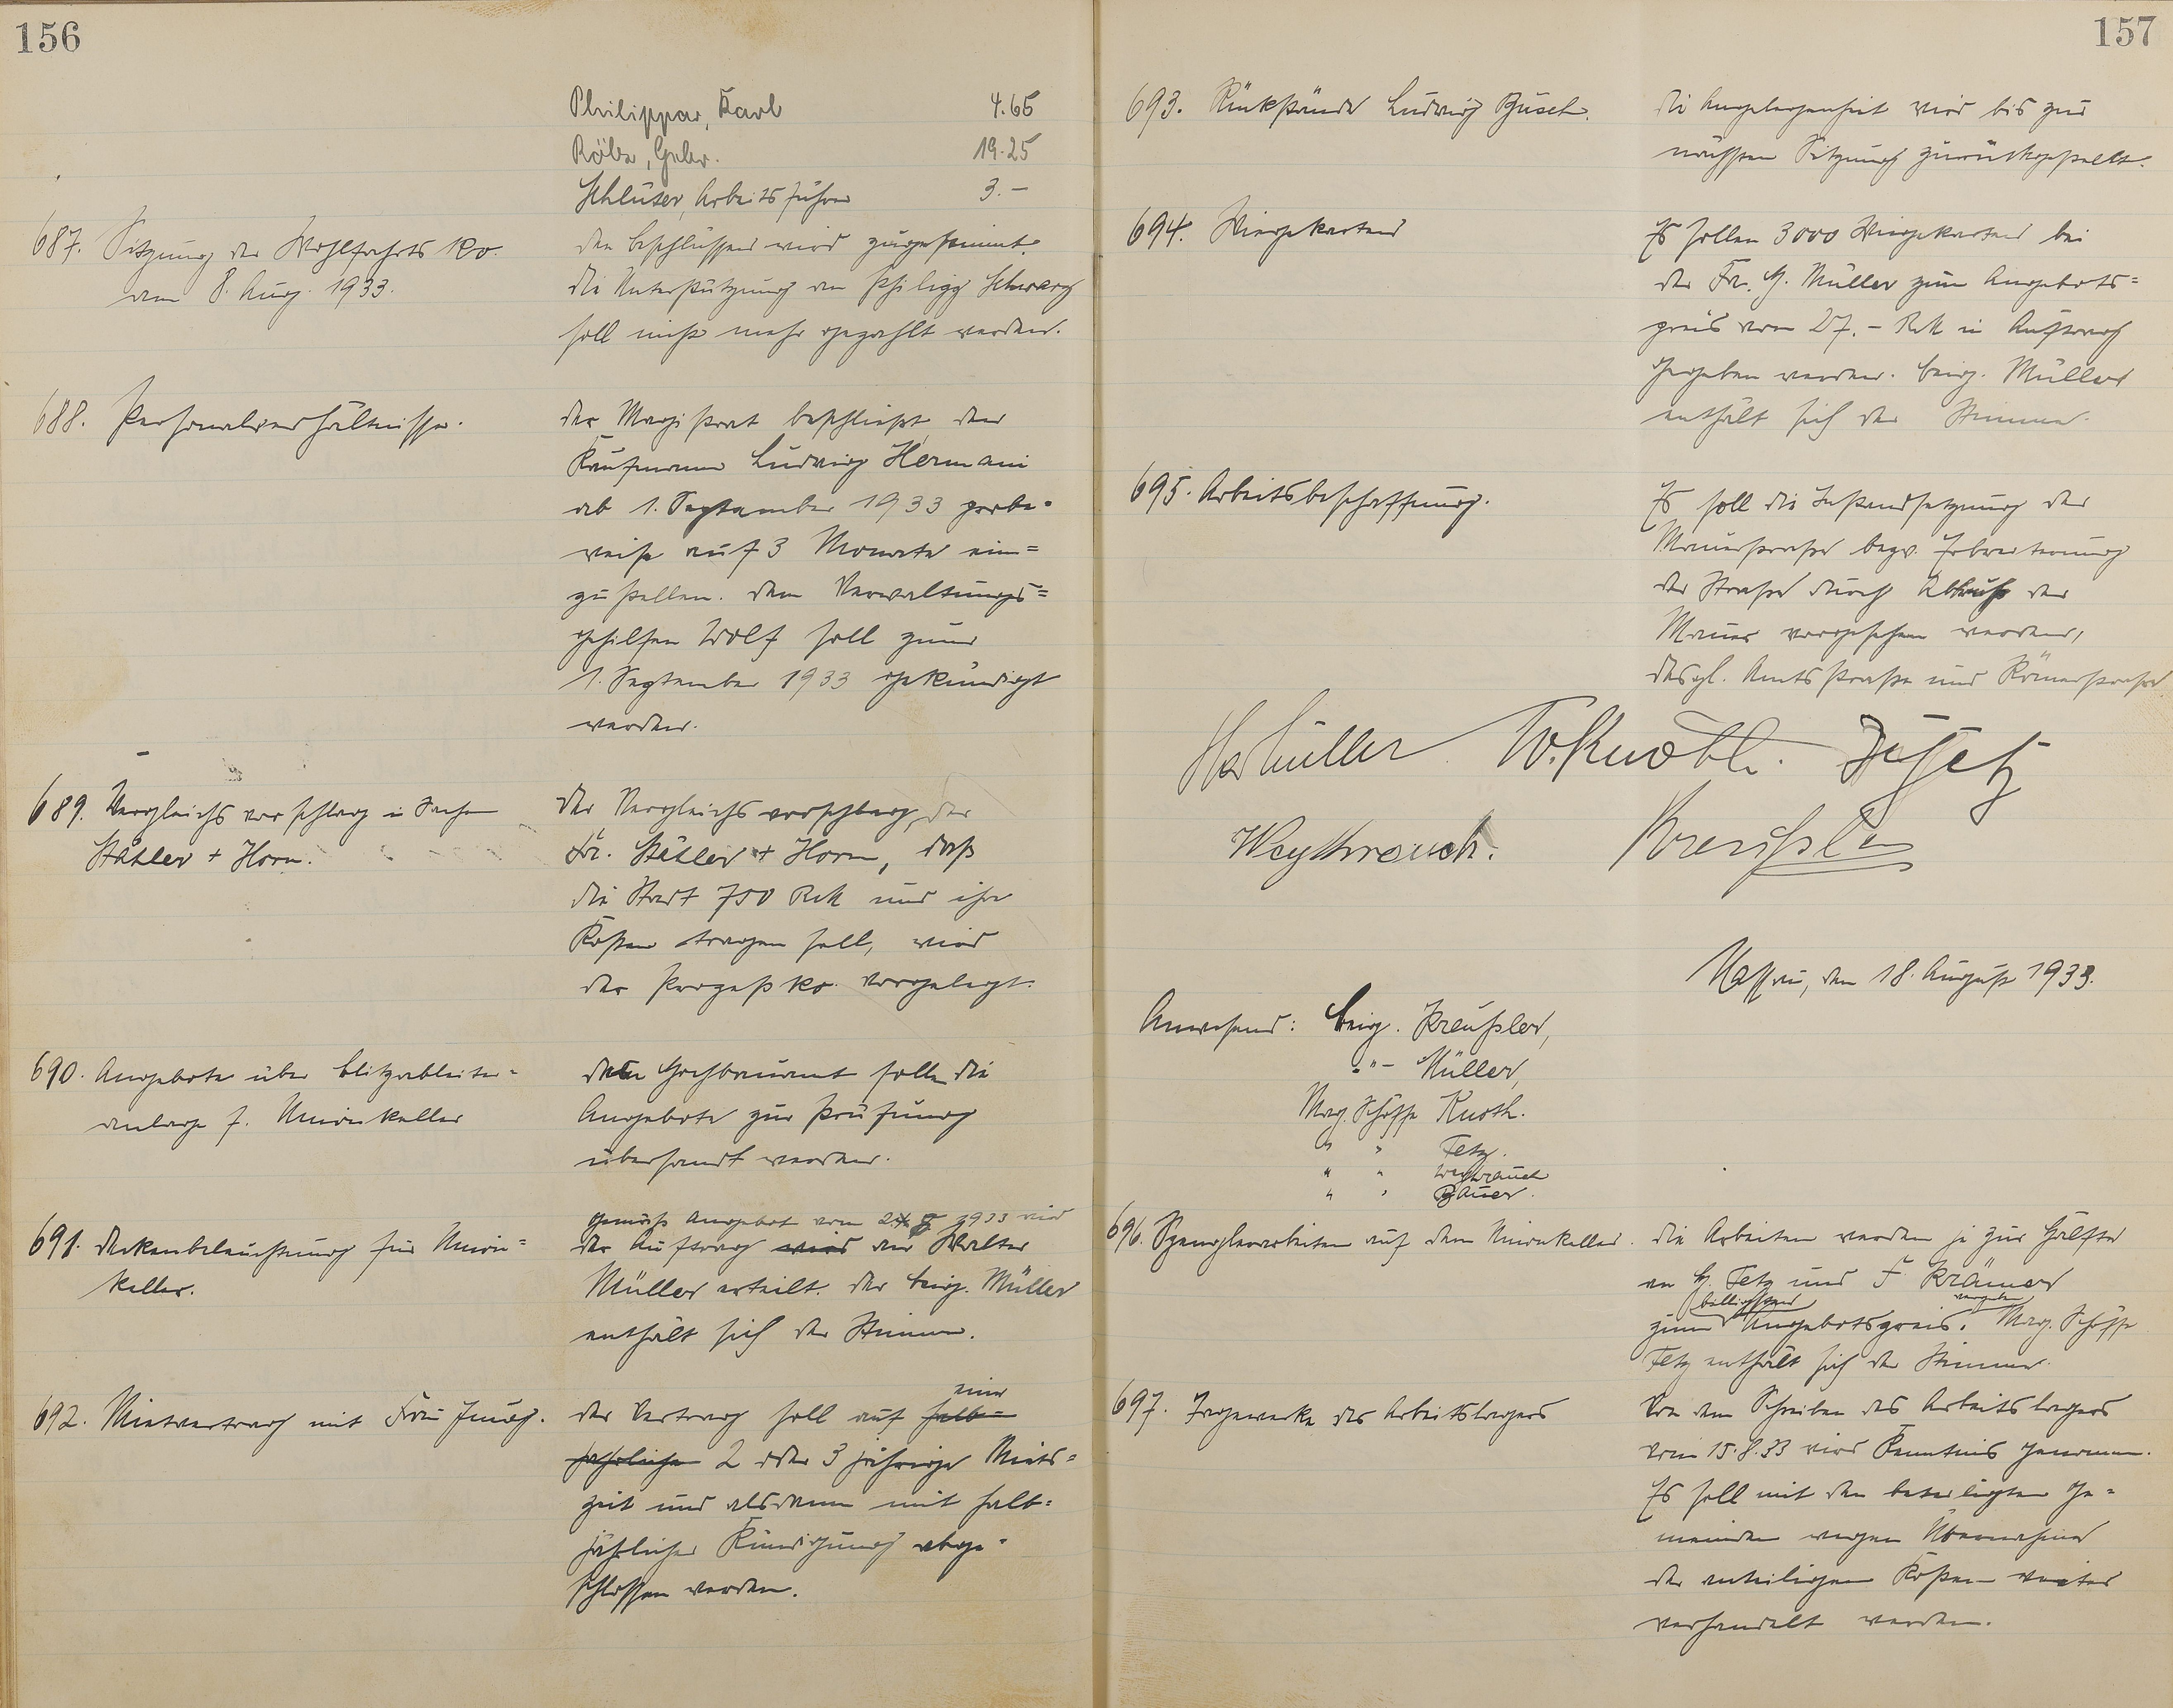 156
Philippar, Karl 4.65
Röbe, Gebr. 19.25
Schlüter, Arbeitsführer 3.-
687. Sitzung der Wohlfahrts Ko.
vom 8. Aug. 1933.
den Beschlüssen wird zugestimmt.
die Unterstützung an Philipp Schwarz
soll nicht mehr gezahlt werden.
688. Personalverhältnisse.
der Magistrat beschließt, den
Kaufmann Ludwig Hermani
ab 1. September 1933 probe-
weise auf 3 Monate ein=
zustellen. dem Verwaltungs=
gehilfen Wolf soll zum
1. September 1933 gekündigt
werden.
689. Vergleichsvorschlag in Sachen
Stähler + Horn.
der Vergleichsvorschlag der
Fr. Stähler + Horn, daß
die Stadt 750 RM und ihre
Kosten tragen soll, wird
der Prozeß Ko. vorgelegt.
690. Angebote über Blitzableiter-
anlage f. Unionkeller
dem Hochbauamt sollen die
Angebote zur Prüfung
übersandt werden.
691. Deckenbeleuchtung für Union=
keller.
gemäß Angebot vom 1933 wird
der Auftrag wird an Walter
Müller erteilt. der Beig. Müller
enthält sich der Stimme.
692. Mietvertrag mit Frau Jung.
der Vertrag soll auf halb=
eine
jährliche 2 oder 3 jährige Miets=
zeit und alsdann mit halb=
jährlicher Kündigung abge-
schlossen werden.
157
693. Rückstände Ludwig Buseh.
die Angelegenheit wird bis zur
nächsten Sitzung zurückgestellt.
694. Wiegekarten
Es sollen 3000 Wiegekarten bei
der Fr. H. Müller zum Angebots=
preis von 27.- RM in Auftrag
gegeben werden. Beig. Müller
enthält sich der Stimme.
695. Arbeitsbeschaffung.
Es soll die Instandsetzung der
Mauerstraße bezw. Erbreiterung
der Straße durch Abbruch der
Mauer vorgesehen werden,
desgl. Amtsstraße und Römerstraße
Müller W. Knoth. Fetz
Weythrauch. Kreußler
Nassau, den 18. August 1933.
Anwesend: Beig. Kreußler,
-"- Müller,
Mag. Schöffe Knoth.
" " Fetz.
" " Weythrauch
" " Bauer.
696. Spenglerarbeiten auf dem Unionkeller.
die Arbeiten werden je zur Hälfte
an H. Fetz und F Krämer
billigsten vergeben
zum Angebotspreis. Mag. Schöffe
Fetz enthält sich der Stimme.
697. Tagewerke des Arbeitslagers
Von dem Schreiben des Arbeitslagers
vom 15.8.33 wird Kenntnis genommen.
Es soll mit den beteiligten Ge-
meinden wegen Übernahme
der anteiligen Kosten weiter
verhandelt werden.